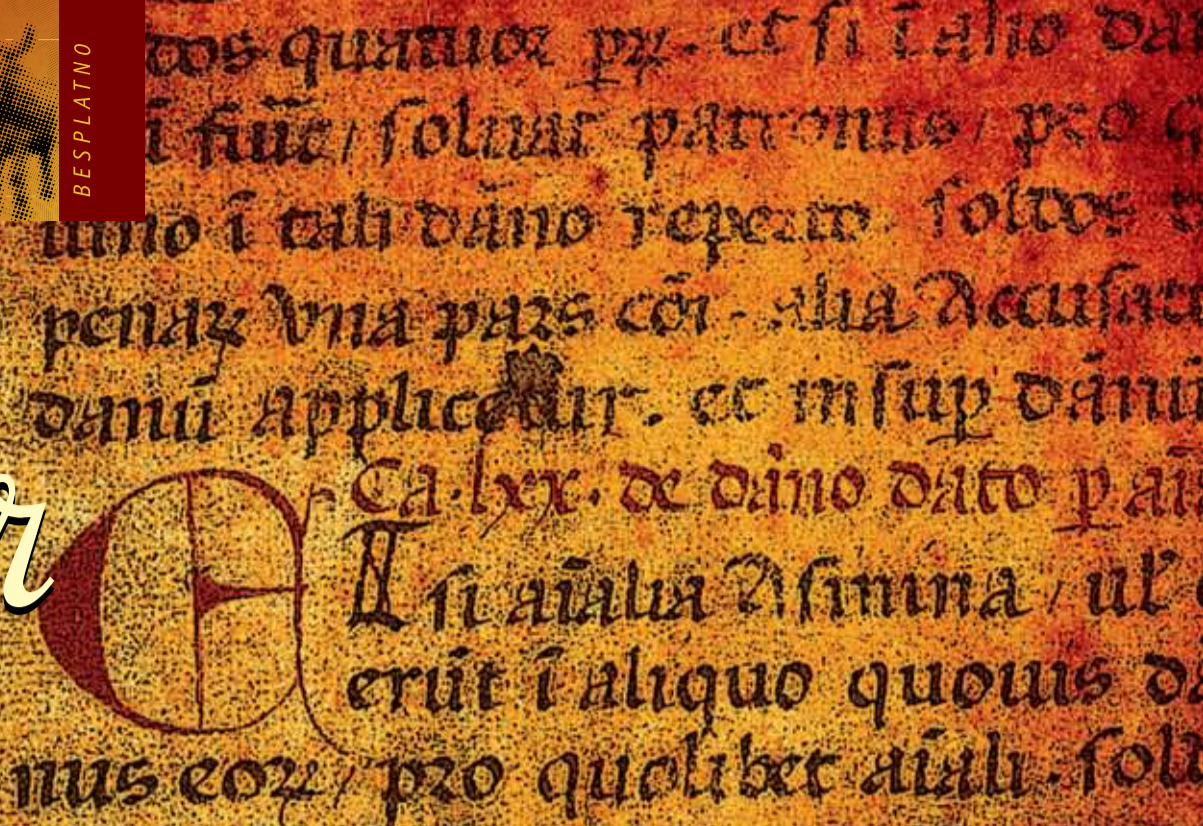 BESPLATNO
quatuor pꝝ. et si ī alio
fiūt / soluat patronus / pro
ī tali dāno reperto soldos
penaꝝ Vna pars cōi. alia Accusat
danū applicetur. et insuꝑ dānū
r
Ca. lxx. de dāno dato ꝑ
ET si aīalia Asinina / ul
erūt ī aliquo quouis
nus eoꝝ / pro quolibet aīali. sol